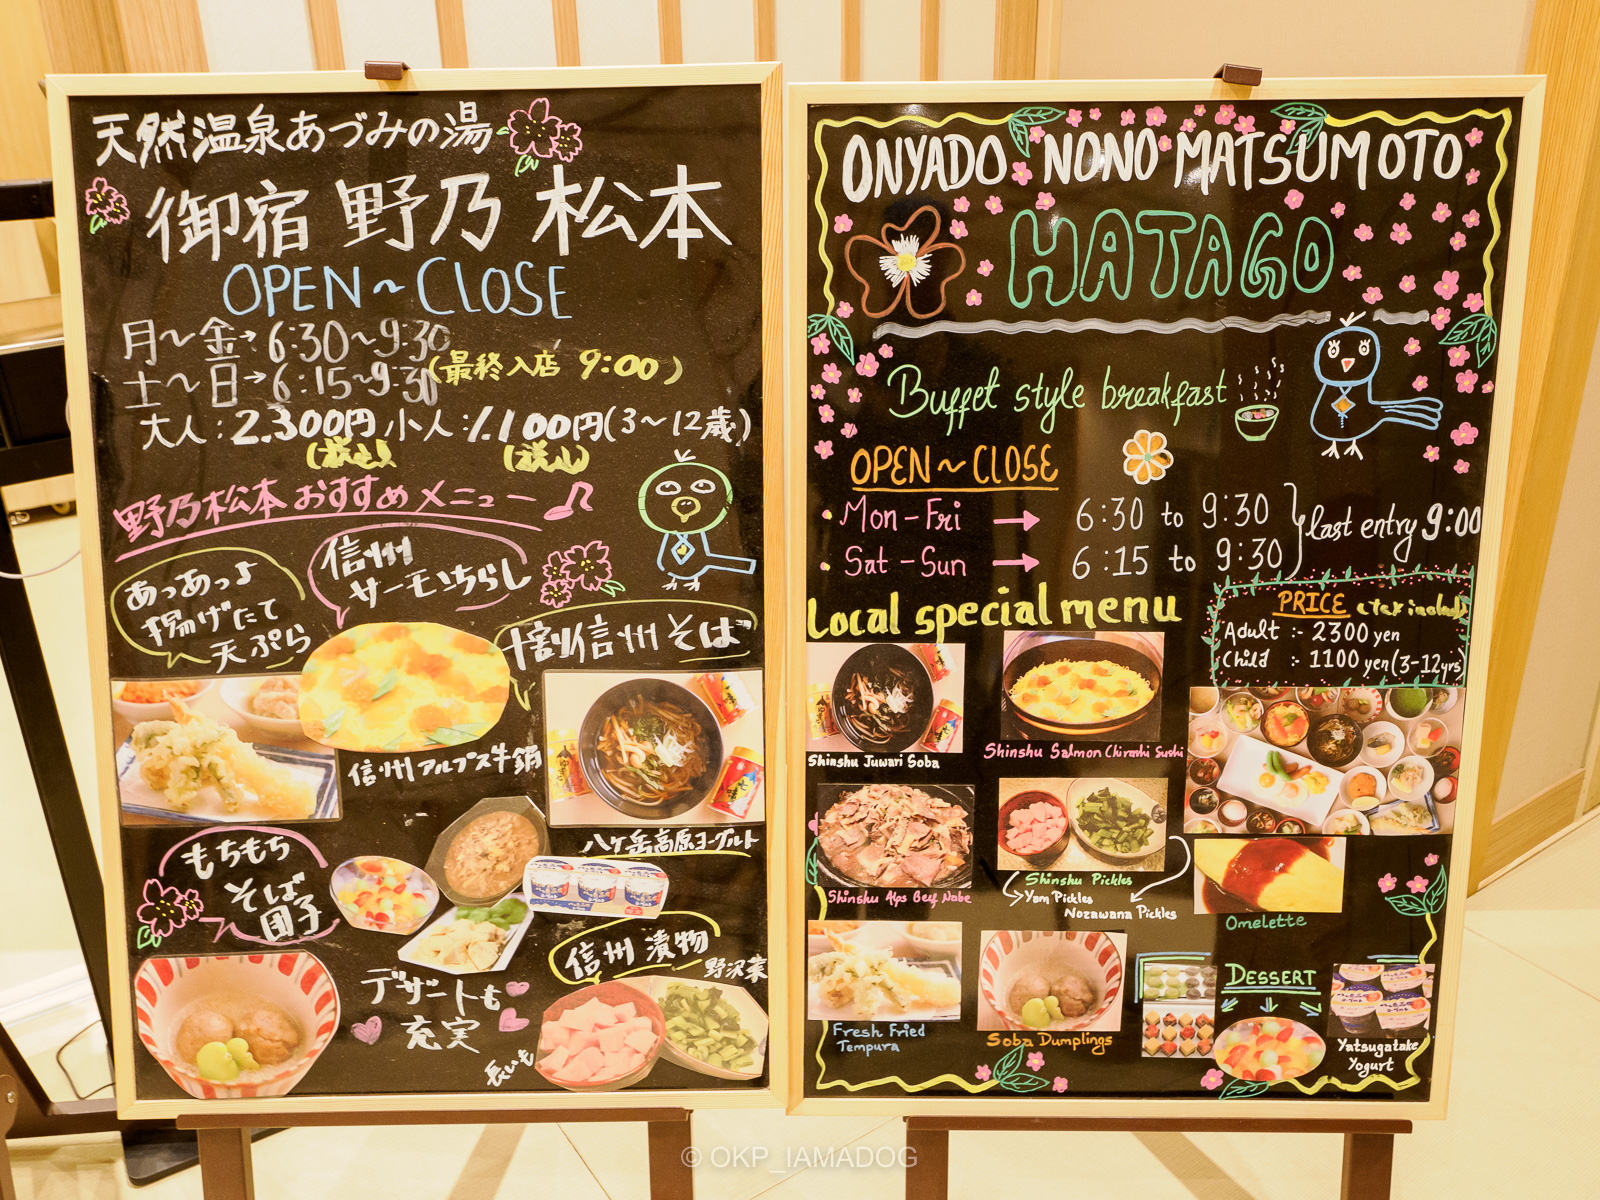 天然温泉あづみの湯
御宿 野乃 松本
OPEN~CLOSE
月~金→6:30~9:30
土~日→6:15~9:30
(最終入店 9:00)
大人:2.300円 小人:1.100円(3~12歳)
(税込) (税込)
野乃松本おすすめメニュー♪
あっあっ♪
揚げたて
天ぷら
信州
サーモンちらし
十割信州そば
信州アルプス牛鍋
八ヶ岳高原ヨーグルト
もちもち
そば
団子
信州 漬物
野沢菜
デザートも
充実
長いも
ONYADO NONO MATSUMOTO
HATAGO
Buffet style breakfast
OPEN~CLOSE
Mon-Fri → 6:30 to 9:30
Sat-Sun → 6:15 to 9:30
last entry 9:00
Local special menu
PRICE
Adult :- 2300 yen
Child :- 1100 yen (3-12yrs)
Shinshu Juwari Soba
Shinshu Salmon Chirashi Sushi
Shinshu Alps Beef Nabe
Shinshu Pickles
Yam Pickles
Nozawana Pickles
Omelette
Fresh Fried
Tempura
Soba Dumplings
DESSERT
Yatsugatake
Yogurt
© OKP_IAMADOG